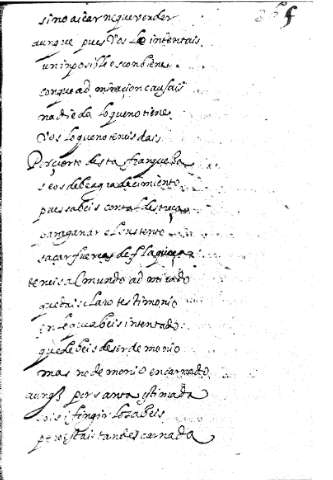 sino ai dar ni que vender
aunque pues vos lo intentais
un inposible es conbiene
con que admiraçion causais
nadie da lo que no tiene
vos lo que no teneis dais
Por çierto desta franqueça
se os debe agradeçimiento
pues sabeis con tal destreça
para ganar el sustento
sacar fuerças de flaqueça
teneis al mundo admirado
que dais claro testimonio
en lo que abeis intentado
que debeis de ser demonio
mas no demonio encarnado
aunq por santa estimada
sois i fingir lo sabeis
pero estais tan descarnada